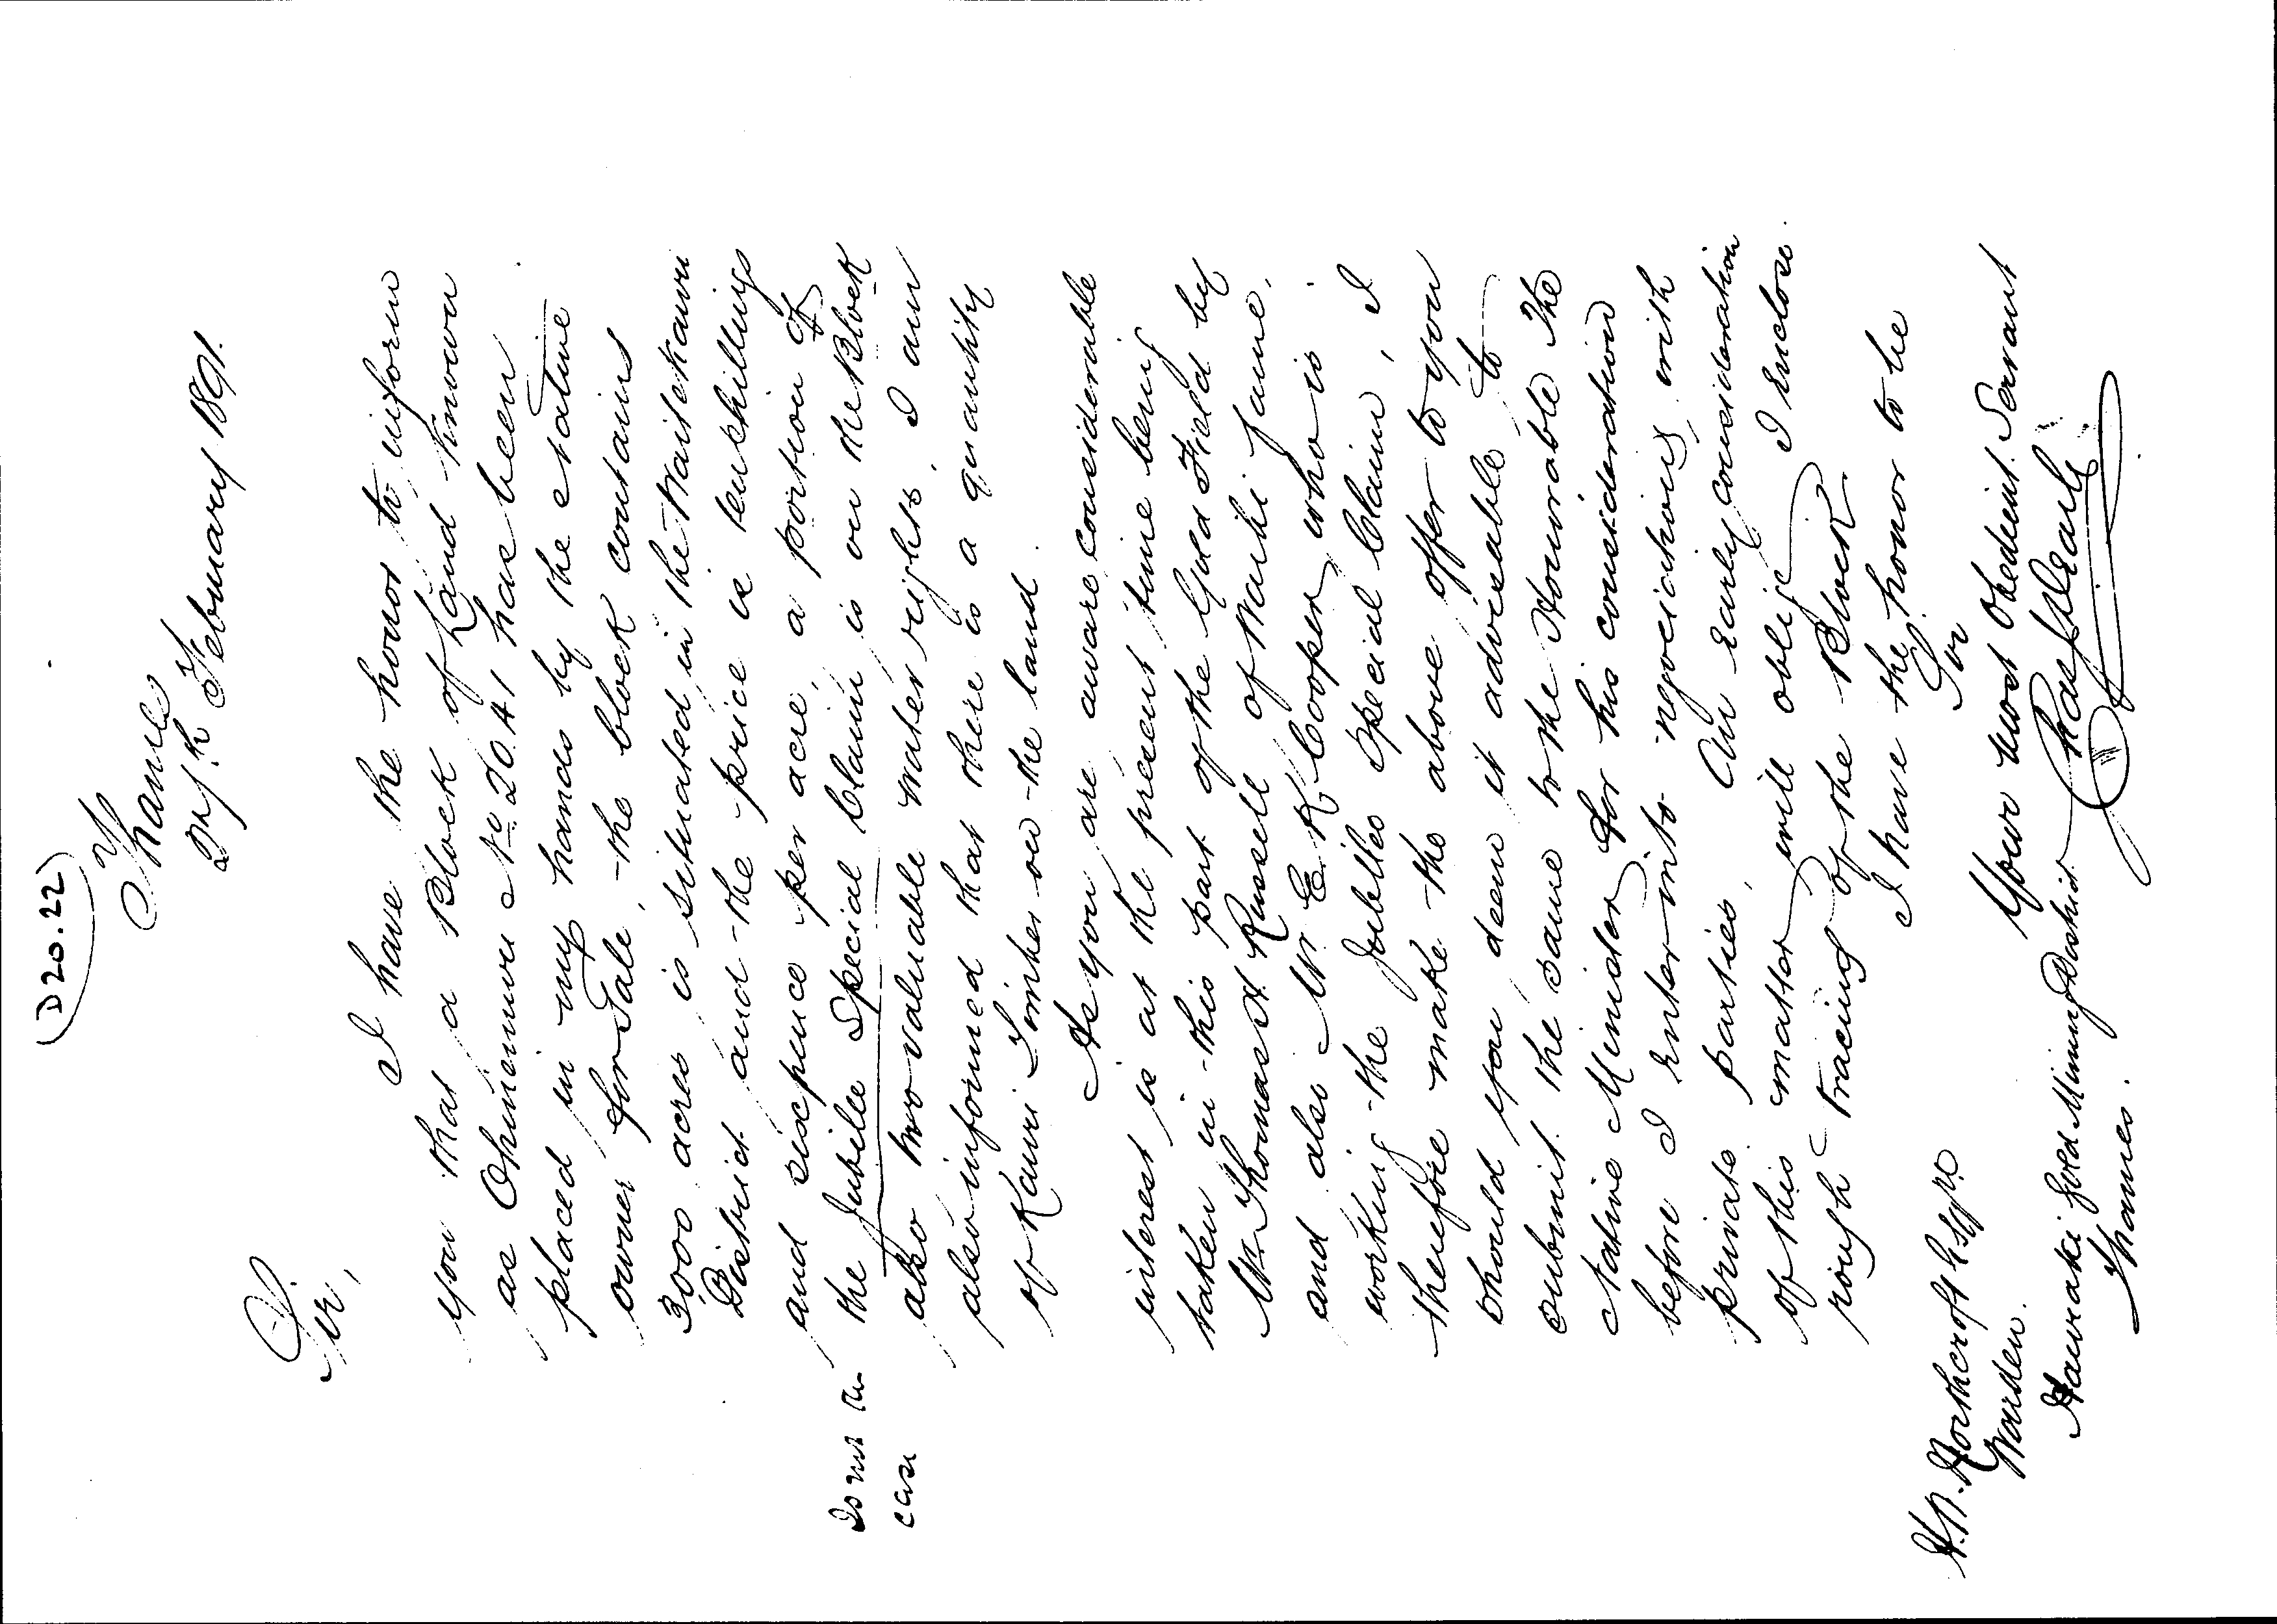 (D20.22)
Thames
24th February 1891.
Sir,
I have the honor to inform
you that a Block of Land known
as Ohinemuri No 20.A1 has been
placed in my hands by the native
owner for Sale, the block contains
3,000 acres is situated in the Waitekauri
District and the price is ten shillings
and sixpence per acre, a portion of
the Jubilee Special Claim is on the Block
Is not the
case
also two valuable water rights, I am
also informed that there is a quantity
of Kauri Timber on the land.
As you are aware considerable
interest is at the present time being
taken in this part of the Gold Field by
Mr. Thomas H. Russell of Waihi fame,
and also Mr. E K Cooper who is
working the Jubilee Special Claim, I
therefore make the above offer to you
should you deem it advisable to
submit the same to the Honurable the
Native Minister for his consideration
before I enter into negociations with
private parties, An early consideration
of this matter will oblige I enclose
rough tracing of the Block
I have the honor to be
Sir
Your most Obedient Servant
H.W. Northcroft Esqre
Warden.
Hauraki Gold Mining District
Thames.